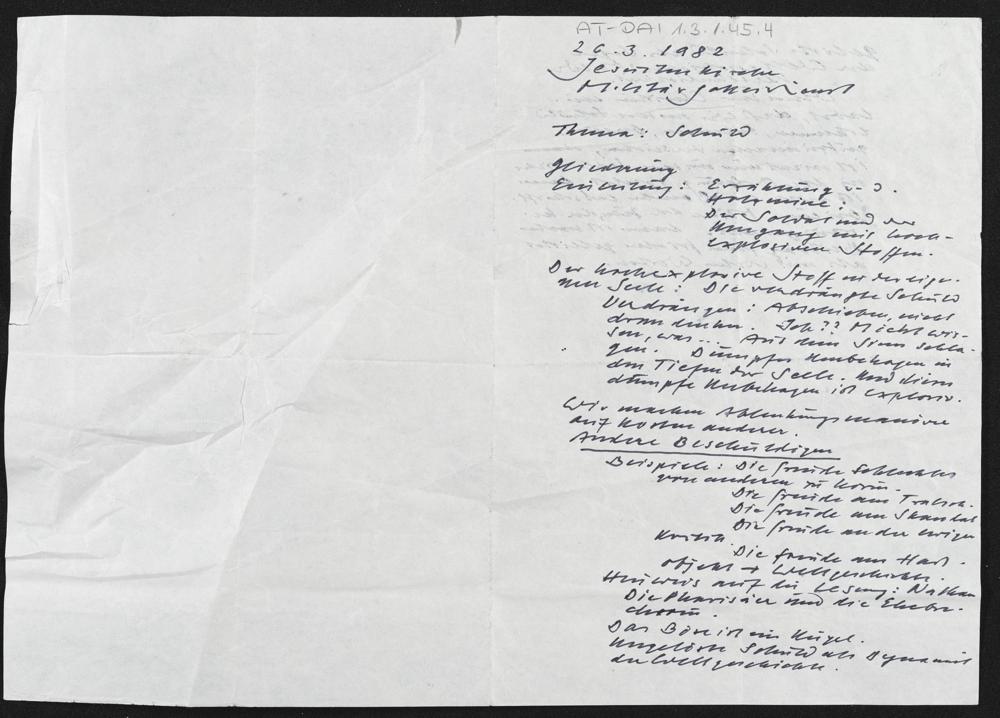 AT-DAI 1.3.1.45.4
26.3.1982
Jesuitenkirche
Militärgottesdienst
Thema: Schuld
Gliederung
Einleitung: Erzählung v. d.
Holzmine:
Der Soldat und der
Umgang mit hoch-
explosiven Stoffen.
Der hochexplosive Stoff in der eige-
nen Seele: Die verdrängte Schuld
Verdrängen: Abschieben, nicht
dran denken. Ich?? Nicht wis-
sen, was ... Aus dem Sinn schla-
gen. Dumpfes Unbehagen in
den Tiefen der Seele. Und dieses
dumpfe Unbehagen ist explosiv.
Wir machen Ablenkungsmanöver
auf Kosten anderer.
Andere Beschuldigen
Beispiele: Die Freude Schlechtes
von anderen zu hören.
Die Freude am Tratsch.
Die Freude am Skandal
Die Freude an der ewigen
Kritik
Die Freude am Haß-
objekt → Weltgeschichte.
Hinweis auf die Lesung: Nathan
Die Pharisäer und die Ehebre-
cherin.
Das Böse ist ein
Ungelöste Schuld als Dynamit
der Weltgeschichte.